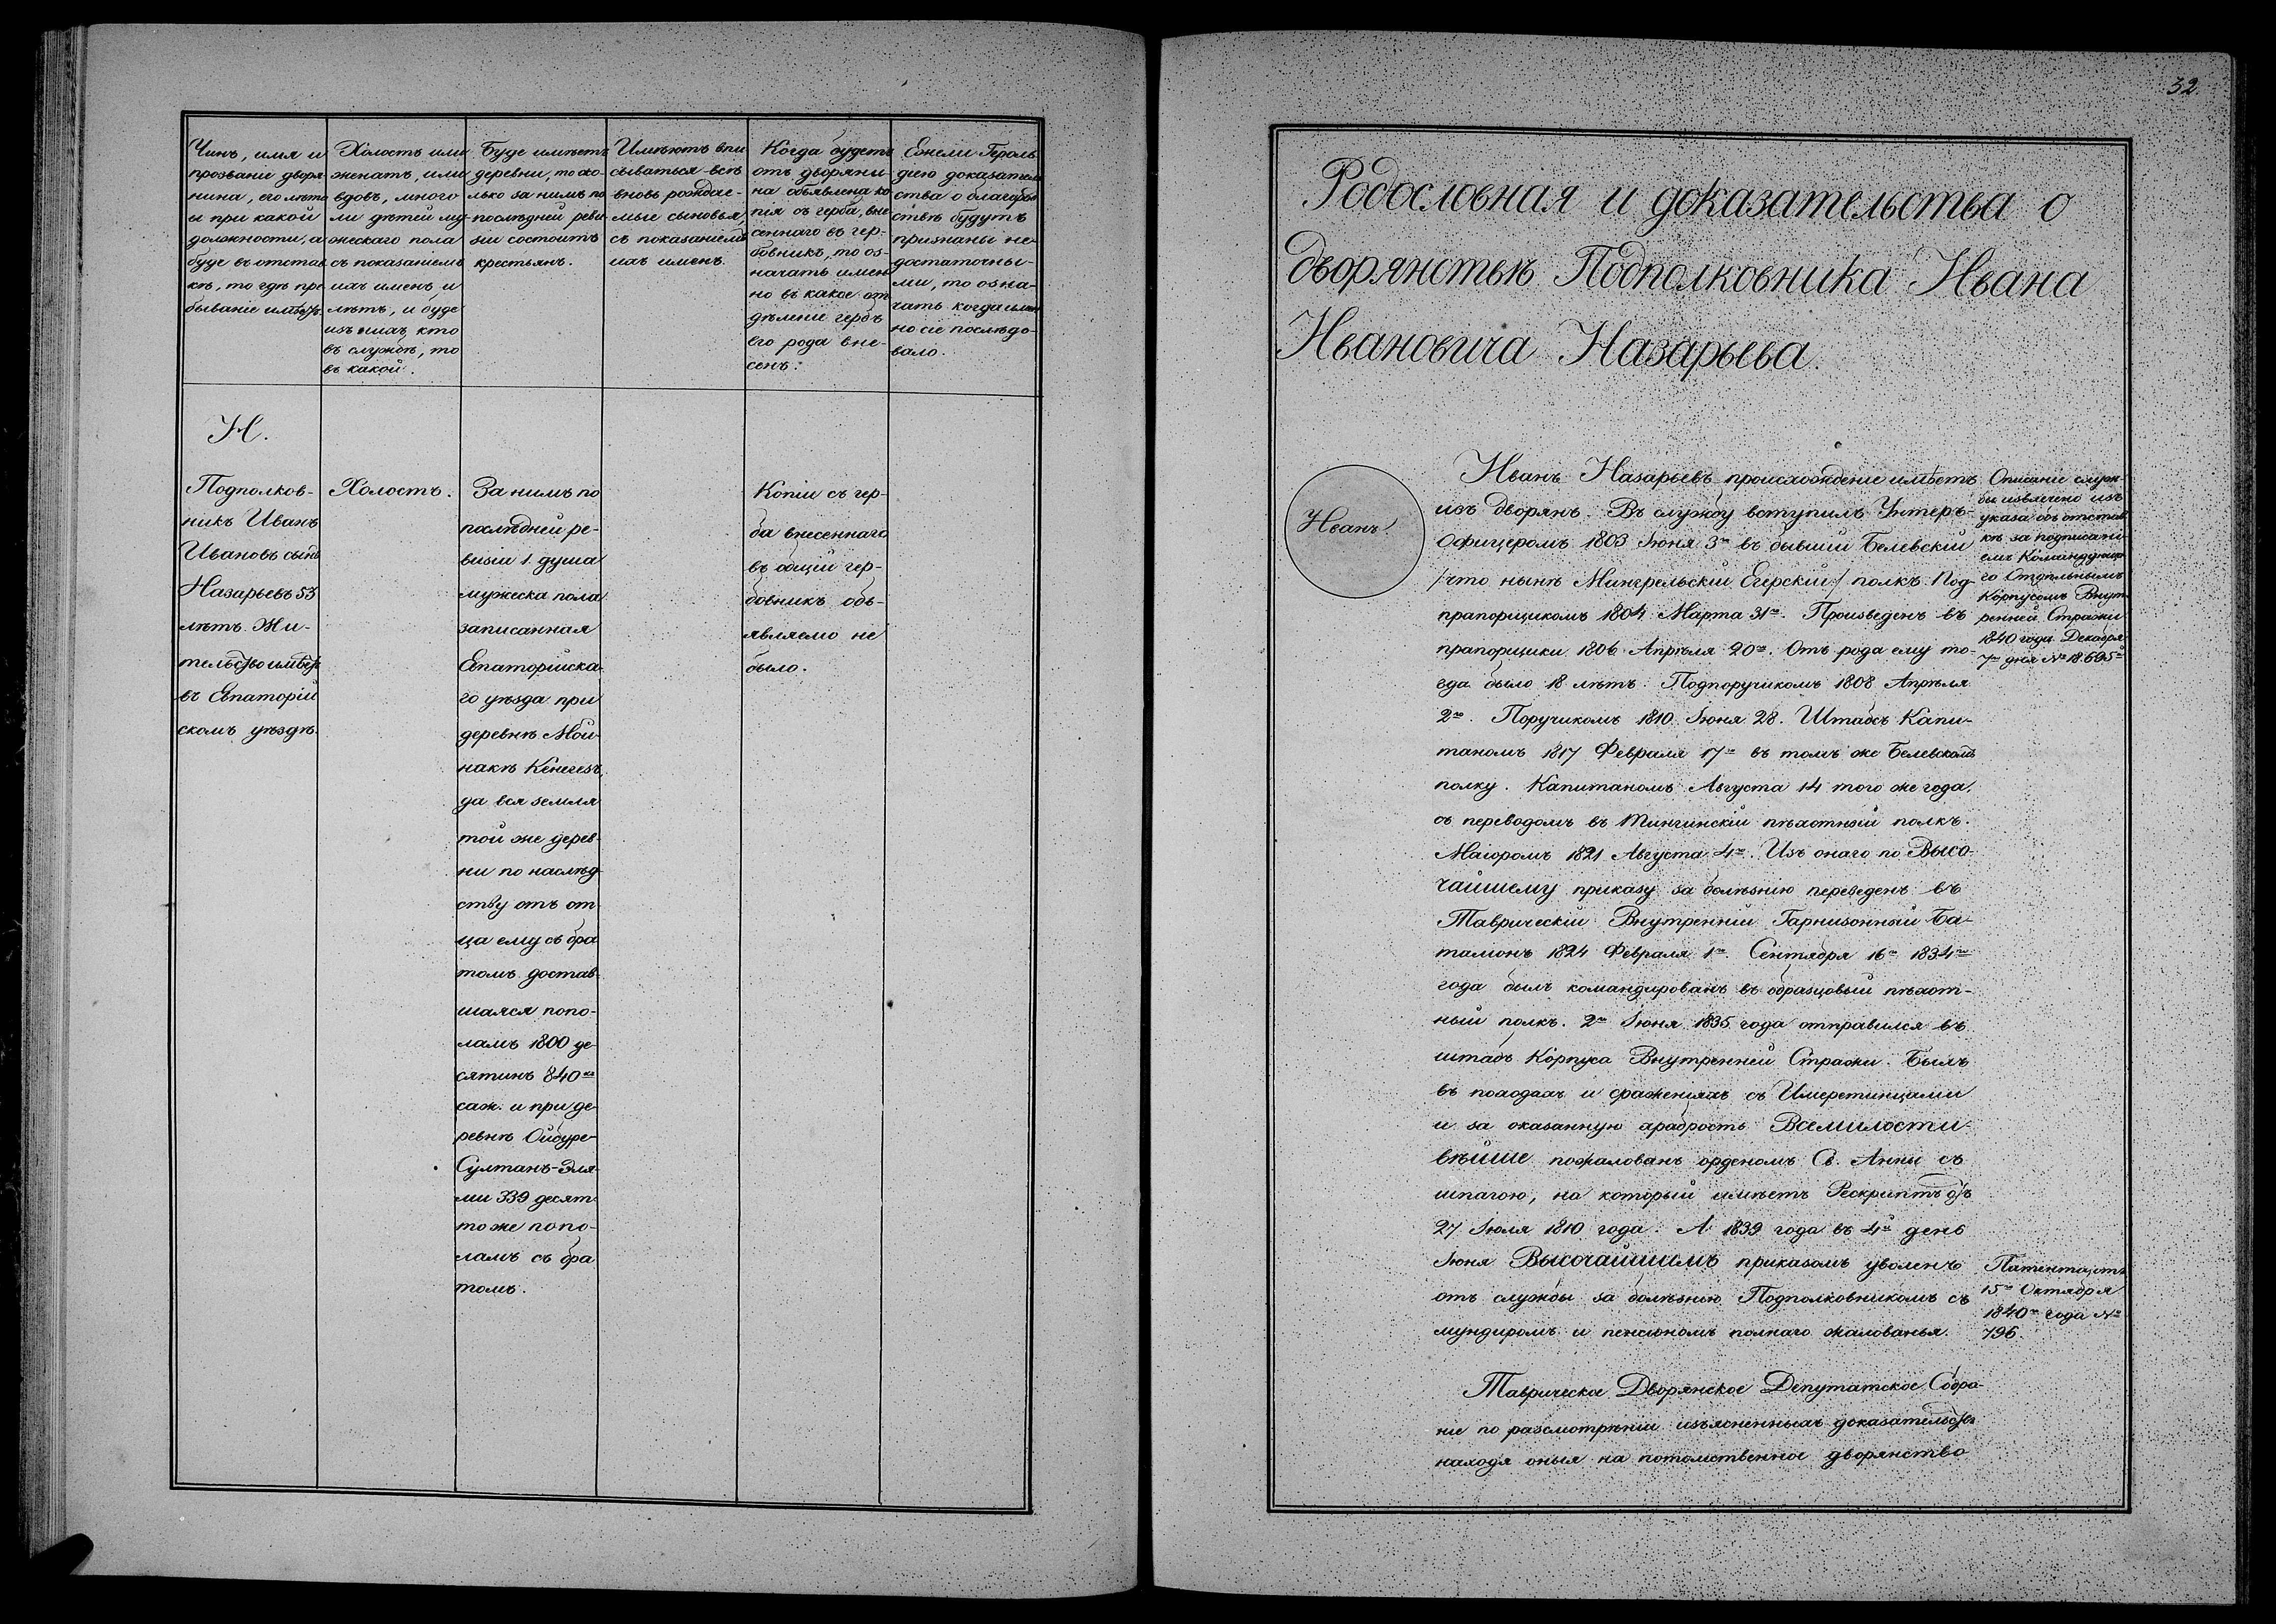 Чинъ, имя и
прозванiе дворя
нина, его лѣта
и при какой
должности, а
буде въ отстав
кѣ, то гдѣ пре
быванiе имѣетъ.
Холостъ или
женатъ, или
вдовъ, много
ли дѣтей му-
жескаго пола
съ показанiемъ
ихъ именъ и
лѣтъ, и буде
изъ нихъ кто
въ службѣ, то
въ какой.
Буде имѣетъ
деревни, то ко-
лько за нимъ по
послѣдней реви-
зiи состоитъ
крестьянъ.
Имѣютъ впи
сываться всѣ
вновь рождае-
мые сыновья,
съ показанiемъ
ихъ именъ.
Когда будетъ
отъ дворяни
на объявлена ко
пiя съ герба, вне
сеннаго въ гер-
бовникъ, то оз-
начать имен
но въ какое от
дѣленiе гербъ
его рода вне-
сенъ.
Ежели Героль
дiею доказатель
ства о благород
ствѣ будутъ
признаны не-
достаточны-
ми, то озна-
чать когда имен
но сiе послѣдо-
вало.
Н.
Подполков-
никъ Иванъ
Ивановъ сынъ
Назарьевъ 53
лѣтъ. Жи-
тельство имѣетъ
въ Евпаторiй
скомъ уѣздѣ.
Холостъ.
За нимъ по
послѣдней ре-
визiи 1. душа
мужеска пола
записанная
Евпаторiйска-
го уѣзда при
деревнѣ Мой-
накѣ Кенегезъ,
да вся земля
той же дерев-
ни по наслѣд
ству отъ от-
ца ему съ бра
томъ достав-
шаяся попо-
ламъ 1800 де-
сятинъ 840ка
саж. и при де-
ревнѣ Ойбуре-
Султанъ-Эля-
ми 339 десят.
тоже попо-
ламъ съ бра
томъ.
Копiи съ гер-
ба внесеннаго
въ общiй гер-
бовникъ объ-
являемо не
было.
32.
Родословная и доказательства о
дворянствѣ Подполковника Ивана
Ивановича Назарьева.
Иванъ.
Иванъ Назарьевъ происхожденiе имѣетъ
изъ дворянъ. Въ службу вступилъ Унтеръ-
Офицеромъ 1803 Iюня 3го въ бывшiй Белевскiй
/что нынѣ Мингрельскiй Егерскiй/ полкъ. Под-
прапорщикомъ 1804 Марта 31го. Произведенъ въ
прапорщики 1806 Апрѣля 20го. Отъ рода ему то-
гда было 18 лѣтъ. Подпоручикомъ 1808 Апрѣля
2го. Поручикомъ 1810 Iюня 28. Штабсъ Капи-
таномъ 1817 Февраля 17го въ томъ же Белевскомъ
полку. Капитаномъ Августа 14 того же года,
съ переводомъ въ Тингинскiй пѣхотный полкъ.
Маiоромъ 1821 Августа 4го. Изъ онаго по Высо-
чайшему приказу за болѣзнiю переведенъ въ
Таврическiй Внутреннiй Гарнизонный Ба-
талiонъ 1824 Февраля 1го. Сентября 16го 1834го
года былъ командированъ въ образцовый пѣхот-
ный полкъ. 2го Iюня 1835 года отправился въ
штабъ Корпуса Внутренней Стражи. Былъ
въ походахъ и сраженiяхъ съ Имеретинцами
и за оказанную храбрость Всемилости-
вѣйше пожалованъ орденомъ Св. Анны съ
шпагою, на который имѣетъ Рескриптъ отъ
27 Iюля 1810 года. А 1839 года въ 4й день
Iюня Высочайшимъ приказомъ уволенъ
отъ службы за болѣзнiю Подполковникомъ съ
мундиромъ и пенсiономъ полнаго жалованья.
Таврическое Дворянское Депутатское Собра-
нiе по разсмотрѣнiи изъясненныхъ доказательствъ
находя оныя на потомственное дворянство
Описанiе служ-
бы извлечено изъ
указа объ отстав
кѣ за подписанi-
емъ Командующа
го Отдѣльнымъ
Корпусомъ Внут-
ренней Стражи
1840 года Декабря
7го дня № 18.695й
Патента, отъ
15го Октября
1840го года №
796.